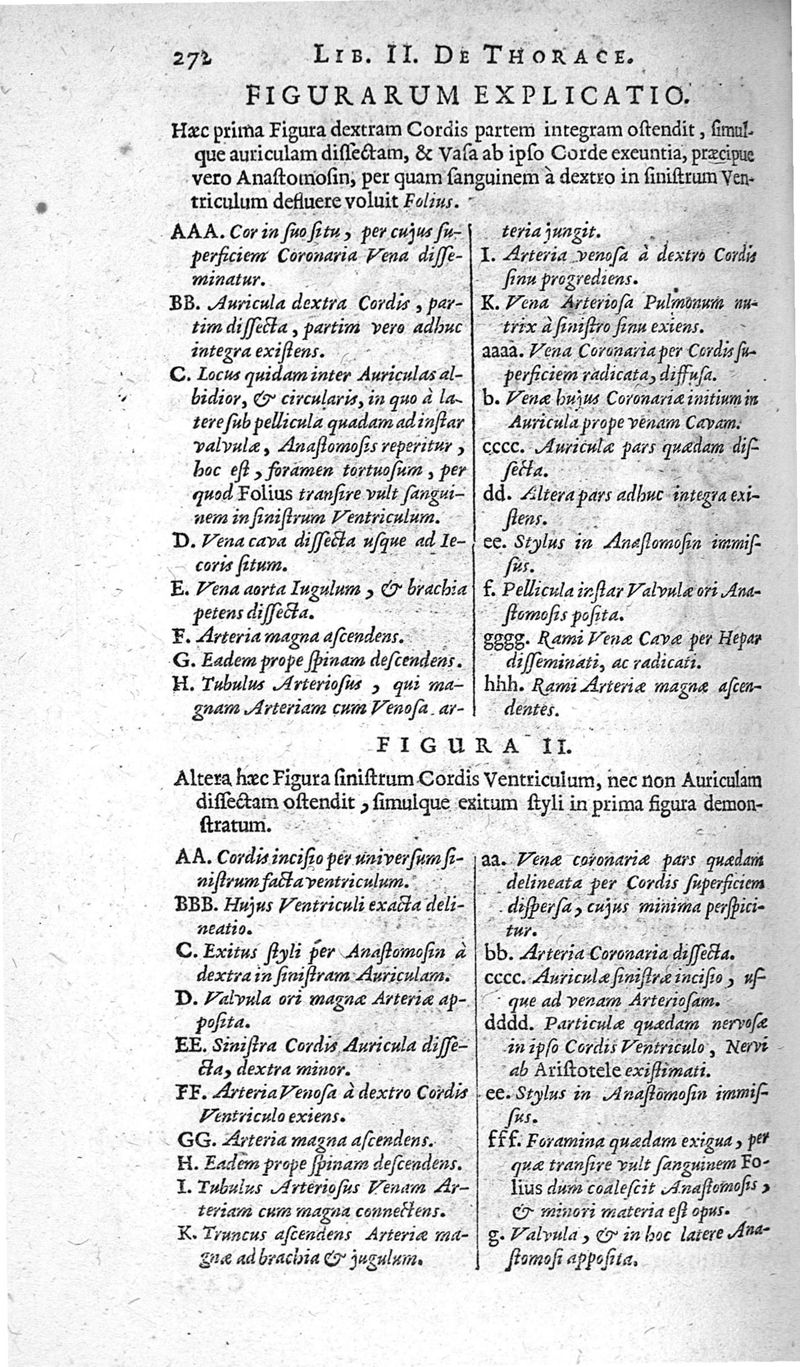 272 LIB. II. DE THORACE.
FIGURARUM EXPLICATIO.
Hæc prima Figura dextram Cordis partem integram oſtendit, ſimul-
que auriculam diſſectam, & Vaſa ab ipſo Corde exeuntia, præcipue
vero Anaſtomoſin, per quam ſanguinem à dextro in ſiniſtrum Ven-
triculum defluere voluit Folius.
AAA. Cor in ſuo ſitu, per cujus ſu-
perficiem Coronaria Vena diſſe-
minatur.
BB. Auricula dextra Cordis, par-
tim diſſecta, partim vero adhuc
integra exiſtens.
C. Locus quidam inter Auriculas al-
bidior, & circularis, in quo à la-
tere ſub pellicula quadam ad inſtar
valvulæ, Anaſtomoſis reperitur,
hoc eſt, foramen tortuoſum, per
quod Folius tranſire vult ſangui-
nem in ſiniſtrum Ventriculum.
D. Vena cava diſſecta uſque ad Ie-
coris ſitum.
E. Vena aorta Iugulum, & brachia
petens diſſecta.
F. Arteria magna aſcendens.
G. Eadem prope ſpinam deſcendens.
H. Tubulus Arterioſus, qui ma-
gnam Arteriam cum Venoſa ar-
teria jungit.
I. Arteria venoſa à dextro Cordis
ſinu progrediens.
K. Vena Arterioſa Pulmonum nu-
trix à ſiniſtro ſinu exiens.
aaaa. Vena Coronaria per Cordis ſu-
perficiem radicata, diffuſa.
b. Venæ hujus Coronariæ initium in
Auricula prope venam Cavam.
cccc. Auriculæ pars quædam diſ-
ſecta.
dd. Altera pars adhuc integra exi-
ſtens.
ee. Stylus in Anaſtomoſin immiſ-
ſus.
f. Pellicula inſtar Valvulæ ori Ana-
ſtomoſis poſita.
gggg. Rami Venæ Cavæ per Hepar
diſſeminati, ac radicati.
hhh. Rami Arteriæ magnæ aſcen-
dentes.
FIGURA II.
Altera hæc Figura ſiniſtrum Cordis Ventriculum, nec non Auriculam
diſſectam oſtendit, ſimulque exitum ſtyli in prima figura demon-
ſtratum.
AA. Cordis inciſio per univerſum ſi-
niſtrum facta ventriculum.
BBB. Hujus Ventriculi exacta deli-
neatio.
C. Exitus ſtyli per Anaſtomoſin à
dextra in ſiniſtram Auriculam.
D. Valvula ori magnæ Arteriæ ap-
poſita.
EE. Siniſtra Cordis Auricula diſſe-
cta, dextra minor.
FF. Arteria Venoſa à dextro Cordis
Ventriculo exiens.
GG. Arteria magna aſcendens.
H. Eadem prope ſpinam deſcendens.
I. Tubulus Arterioſus Venam Ar-
teriam cum magna connectens.
K. Truncus aſcendens Arteriæ ma-
gnæ ad brachia & jugulum.
aa. Venæ coronariæ pars quædam
delineata per Cordis ſuperficiem
diſperſa, cujus minima perſpici-
tur.
bb. Arteria Coronaria diſſecta.
cccc. Auriculæ ſiniſtræ inciſio, uſ-
que ad venam Arterioſam.
dddd. Particulæ quædam nervoſæ
in ipſo Cordis Ventriculo, Nervi
ab Ariſtotele exiſtimati.
ee. Stylus in Anaſtomoſin immiſ-
ſus.
fff. Foramina quædam exigua, per
quæ tranſire vult ſanguinem Fo-
lius dum coaleſcit Anaſtomoſis,
& minori materia eſt opus.
g. Valvula, & in hoc latere Ana-
ſtomoſi appoſita.